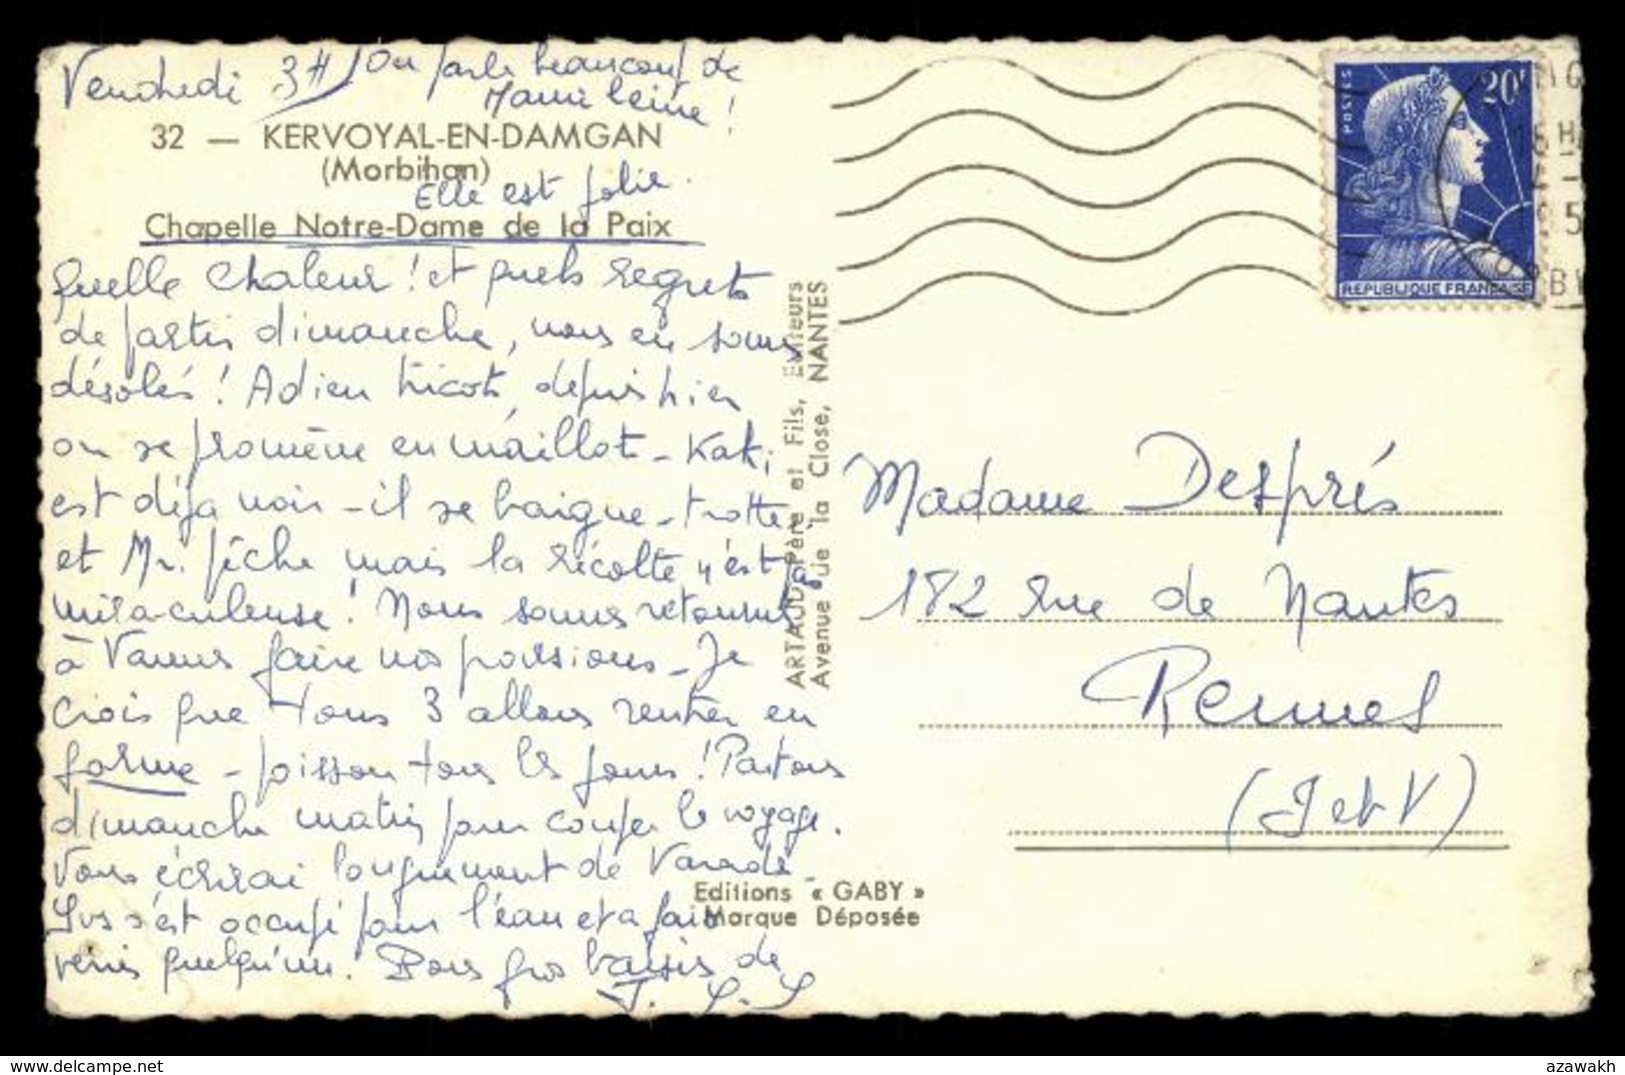 Vendredi 3H
On parle beaucoup de
Mamie Leine !
32 — KERVOYAL-EN-DAMGAN
(Morbihan)
Elle est jolie.
Chapelle Notre-Dame de la Paix
Quelle chaleur ! et quels regrets
de partir dimanche, nous en sommes
désolés ! Adieu tricots, depuis hier
on se promène en maillot - Kaki
est déjà noir - il se baigne - trotte
et Mr. pêche mais la récolte n'est pas
miraculeuse ! Nous sommes retournés
à Vannes faire nos provisions - Je
crois que tous 3 allons rentrer en
forme - poisson tous les jours ! Partons
dimanche matin pour couper le voyage.
Vous écrirai longuement de Varades
s'est occupé pour l'eau et a fait
venir quelqu'un. Bons gros baisers de
ARTAUD Père et Fils, Editeurs
Avenue de la Close, NANTES
Editions « GABY »
Marque Déposée
POSTES
20F
REPUBLIQUE FRANÇAISE
Madame Després
182 rue de Nantes
Rennes
(I et V)
azawakh